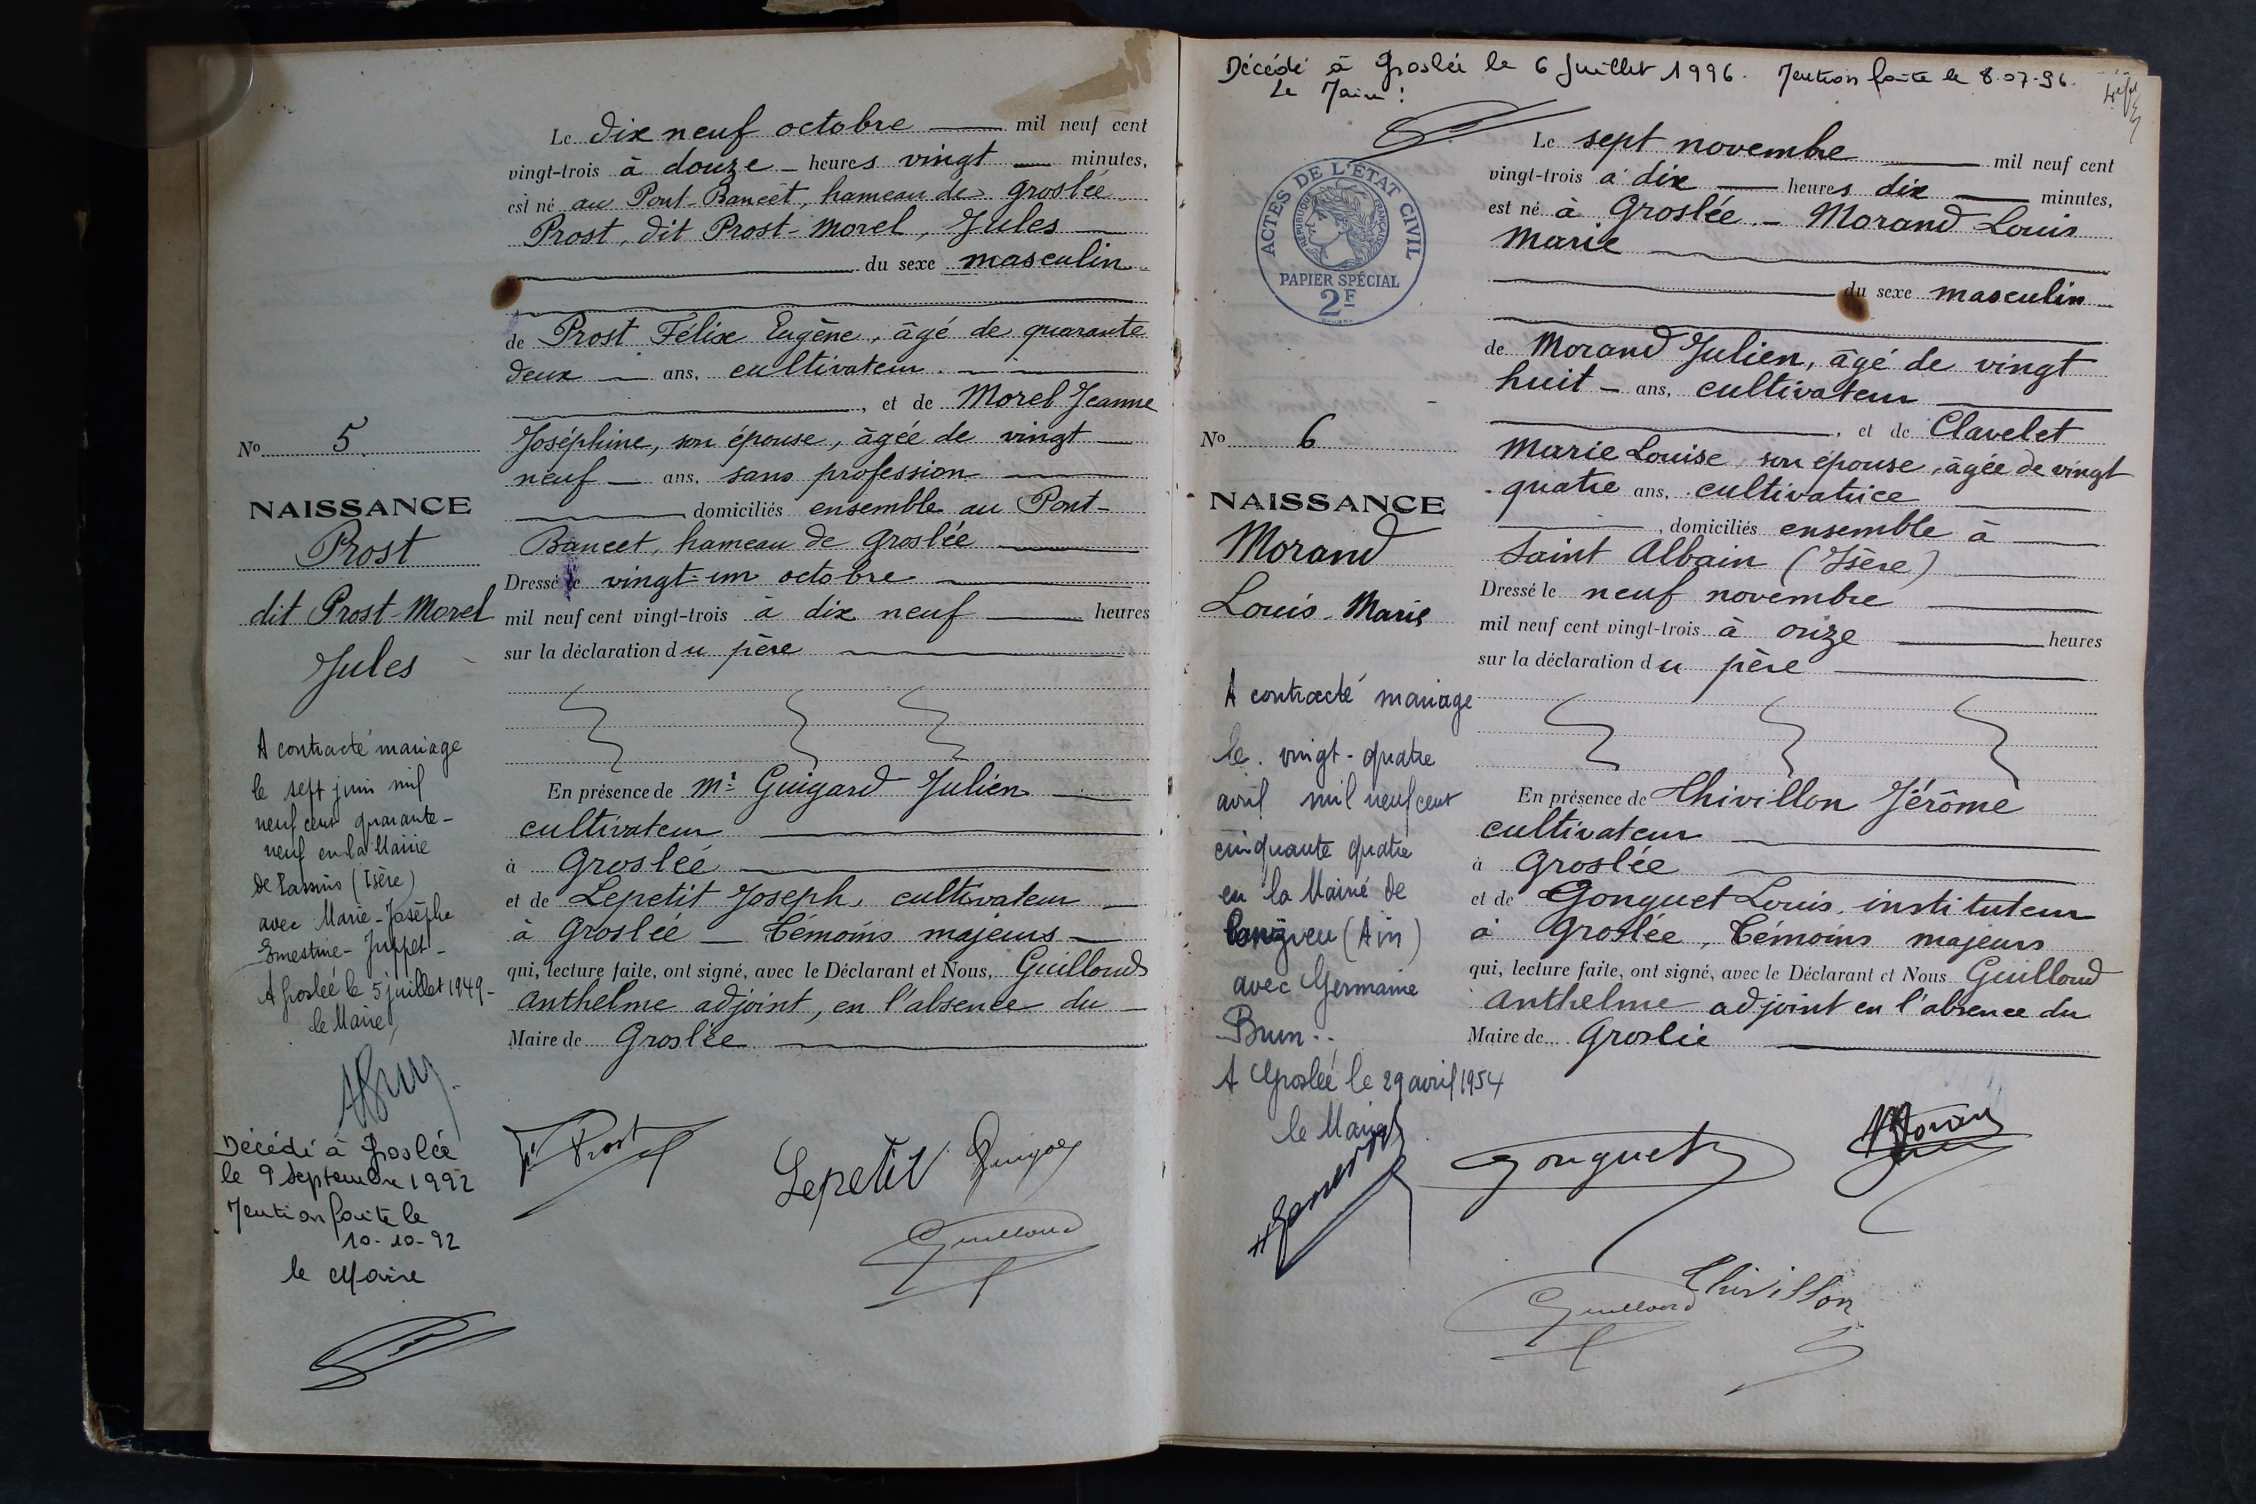 Le dix neuf octobre mil neuf cent
vingt-trois à douze heures vingt minutes,
est né au Pont-Bancet, hameau de Groslée
Prost, dit Prost-Morel, Jules
du sexe masculin
de Prost Félix Eugène, âgé de quarante
deux ans, cultivateur.
, et de Morel Jeanne
Joséphine, son épouse, âgée de vingt
neuf ans, sans profession
domiciliés ensemble au Pont-
Bancet, hameau de Groslée
Dressé le vingt-un octobre
mil neuf cent vingt-trois à dix neuf heures
sur la déclaration du père
En présence de Mr Guigard Julien
cultivateur
à Groslée
et de Lepetit Joseph, cultivateur
à Groslée - témoins majeurs
qui, lecture faite, ont signé, avec le Déclarant et Nous, Guilloud
Anthelme adjoint, en l'absence du
Maire de Groslée
No 5.
NAISSANCE
Prost
dit Prost-Morel
Jules
A contracté mariage
le sept juin mil
neuf cent quarante-
neuf en la Mairie
de Passins (Isère)
avec Marie-Josèphe
Ernestine Juppet
A Groslée le 5 juillet 1949
le Maire,
Décédé à Groslée
le 9 septembre 1992
Mention faite le
10-10-92
le Maire
F. Prost
Lepetit Guigard
Guilloud
Décédé à Groslée le 6 Juillet 1996. Mention faite le 8-07-96.
Le Maire:
ACTES DE L'ÉTAT CIVIL
RÉPUBLIQUE FRANÇAISE
PAPIER SPÉCIAL
2F
Le sept novembre mil neuf cent
vingt-trois à dix heures dix minutes,
est né à Groslée. - Morand Louis
Marie
du sexe masculin
de Morand Julien, âgé de vingt
huit ans, cultivateur
, et de Clavelet
Marie Louise, son épouse, âgée de vingt
quatre ans, cultivatrice
, domiciliés ensemble à
Saint Albain (Isère)
Dressé le neuf novembre
mil neuf cent vingt-trois à onze heures
sur la déclaration du père
En présence de Chivillon Jérôme
cultivateur
à Groslée
et de Gonguet Louis, instituteur
à Groslée, témoins majeurs
qui, lecture faite, ont signé, avec le Déclarant et Nous Guilloud
Anthelme adjoint en l'absence du
Maire de Groslée
No 6
NAISSANCE
Morand
Louis-Marie
A contracté mariage
le vingt-quatre
avril mil neuf cent
cinquante quatre
en la Mairie de
(Ain)
avec Germaine
Brun..
A Groslée le 29 avril 1954
le Maire
Gonguet
Morand
Chivillon
Guilloud